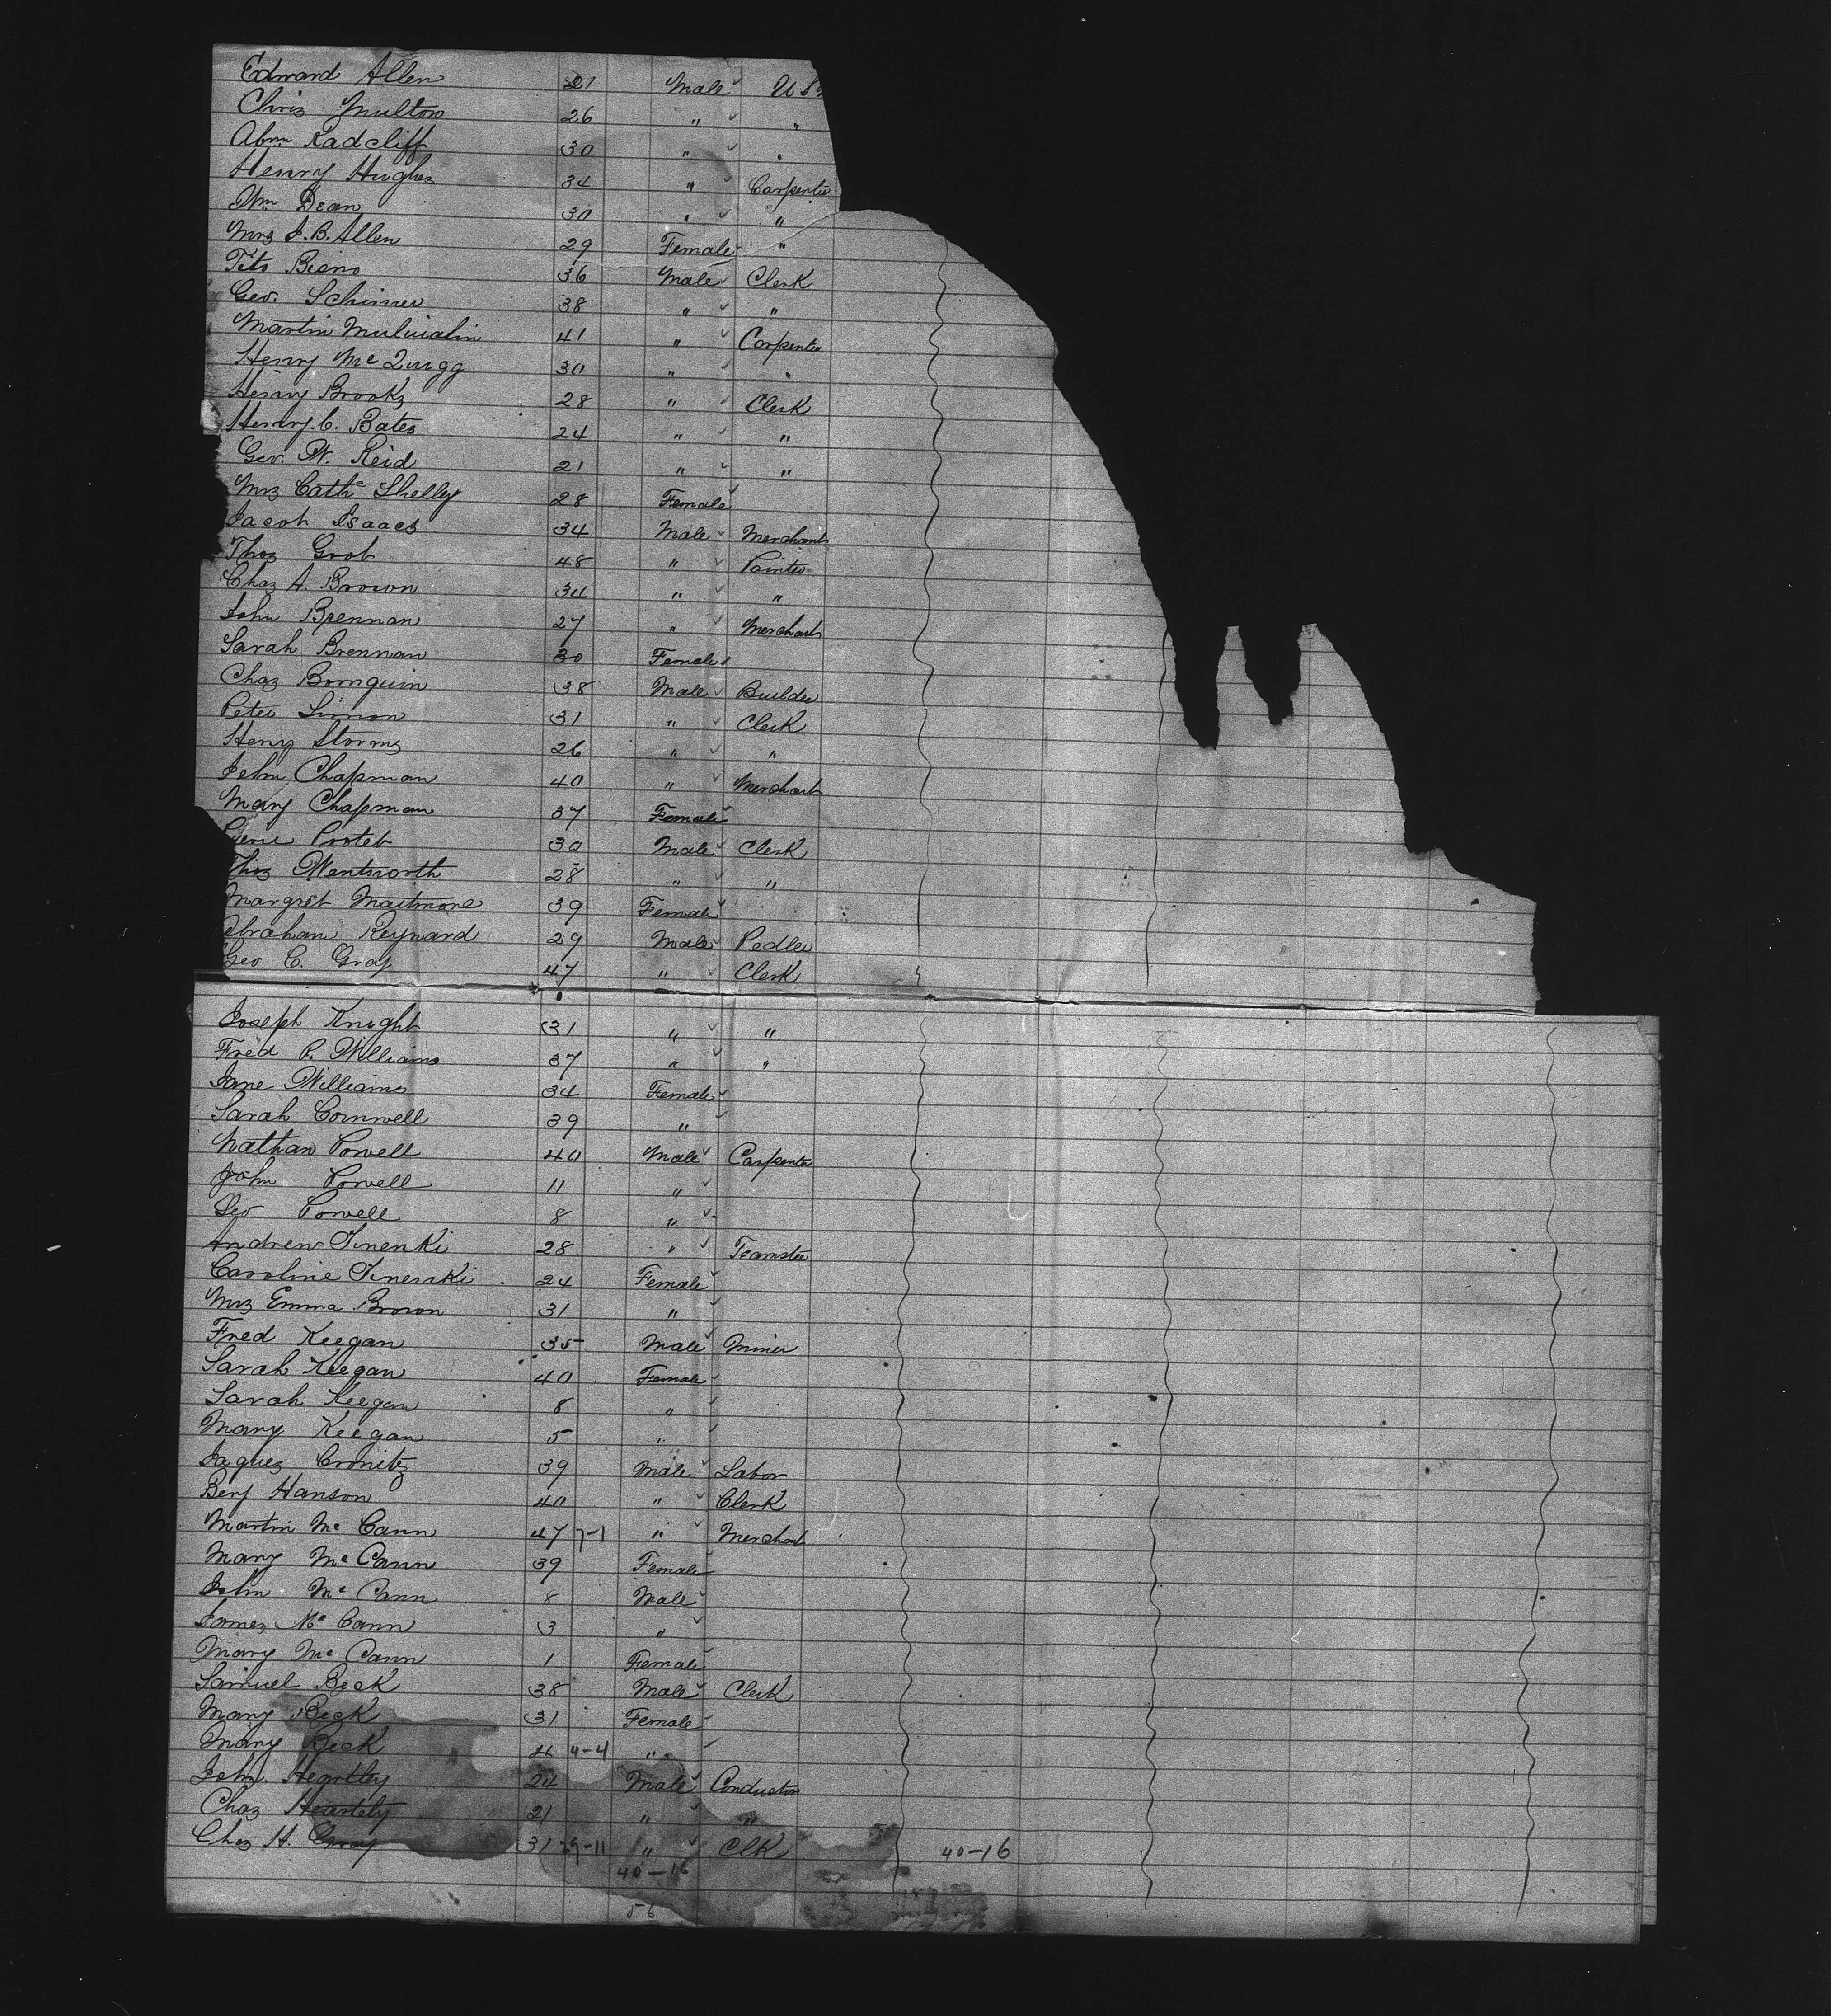 Edward Allen 21 Male U S N
Chris Multon 26 " "
Abm Radcliff 30 " "
Henry Hughes 34 " Carpenter
Wm Dean 30 " "
Mrs J. B. Allen 29 Female "
Tito 36 Male Clerk
Geo. Schimer 38 " "
Martin 41 " Carpenter
Henry Mc Quigg 30 " "
Henry Brooks 28 " Clerk
Henry C. Bates 24 " "
Geo. W. Reid 21 " "
Mrs Cathe Shelley 28 Female
Jacob Isaacs 34 Male Merchant
Thos Grob 48 " Painter
Chas A. Brown 34 " "
John Brennan 27 " Merchant
Sarah Brennan 30 Female
Chas Bornquin 38 Male Builder
Peter Simon 31 " Clerk
Heny Storms 26 " "
John Chapman 40 " Merchant
Mary Chapman 37 Female
Porter 30 Male Clerk
Thos Wentworth 28 " "
Margret 39 Female "
Abraham Reynard 29 Male Pedler
Geo C. Gray 47 " Clerk
Joseph Knight 31 " "
Fred P. Williams 37 " "
Jane Williams 34 Female
Sarah Cornwell 39 "
Nathan Powell 40 Male Carpenter
John Powell 11 "
Geo Powell 8 "
Andrew Sinenki 28 " Teamster
Caroline Sinenki 24 Female
Mrs Emma Brown 31 "
Fred Keegan 35 Male Miner
Sarah Keegan 40 Female
Sarah Keegan 8 "
Mary Keegan 5 "
Jaques Cronitz 39 Male Labor
Benj Hanson 40 " Clerk
Martin Mc Cann 47 7-1 " Merchant
Mary Mc Cann 39 Female
John Mc Cann 8 Male
James Mc Cann 3 "
Mary Mc Cann 1 Female
Samuel Beck 38 Male Clerk
Mary Beck 31 Female
Mary Beck 4 4-4 "
John Heartley 24 Male Conductor
Chas Heartely 21 " "
Chas H. Gray 31 29-11 " Clk 40-16
40-16
56